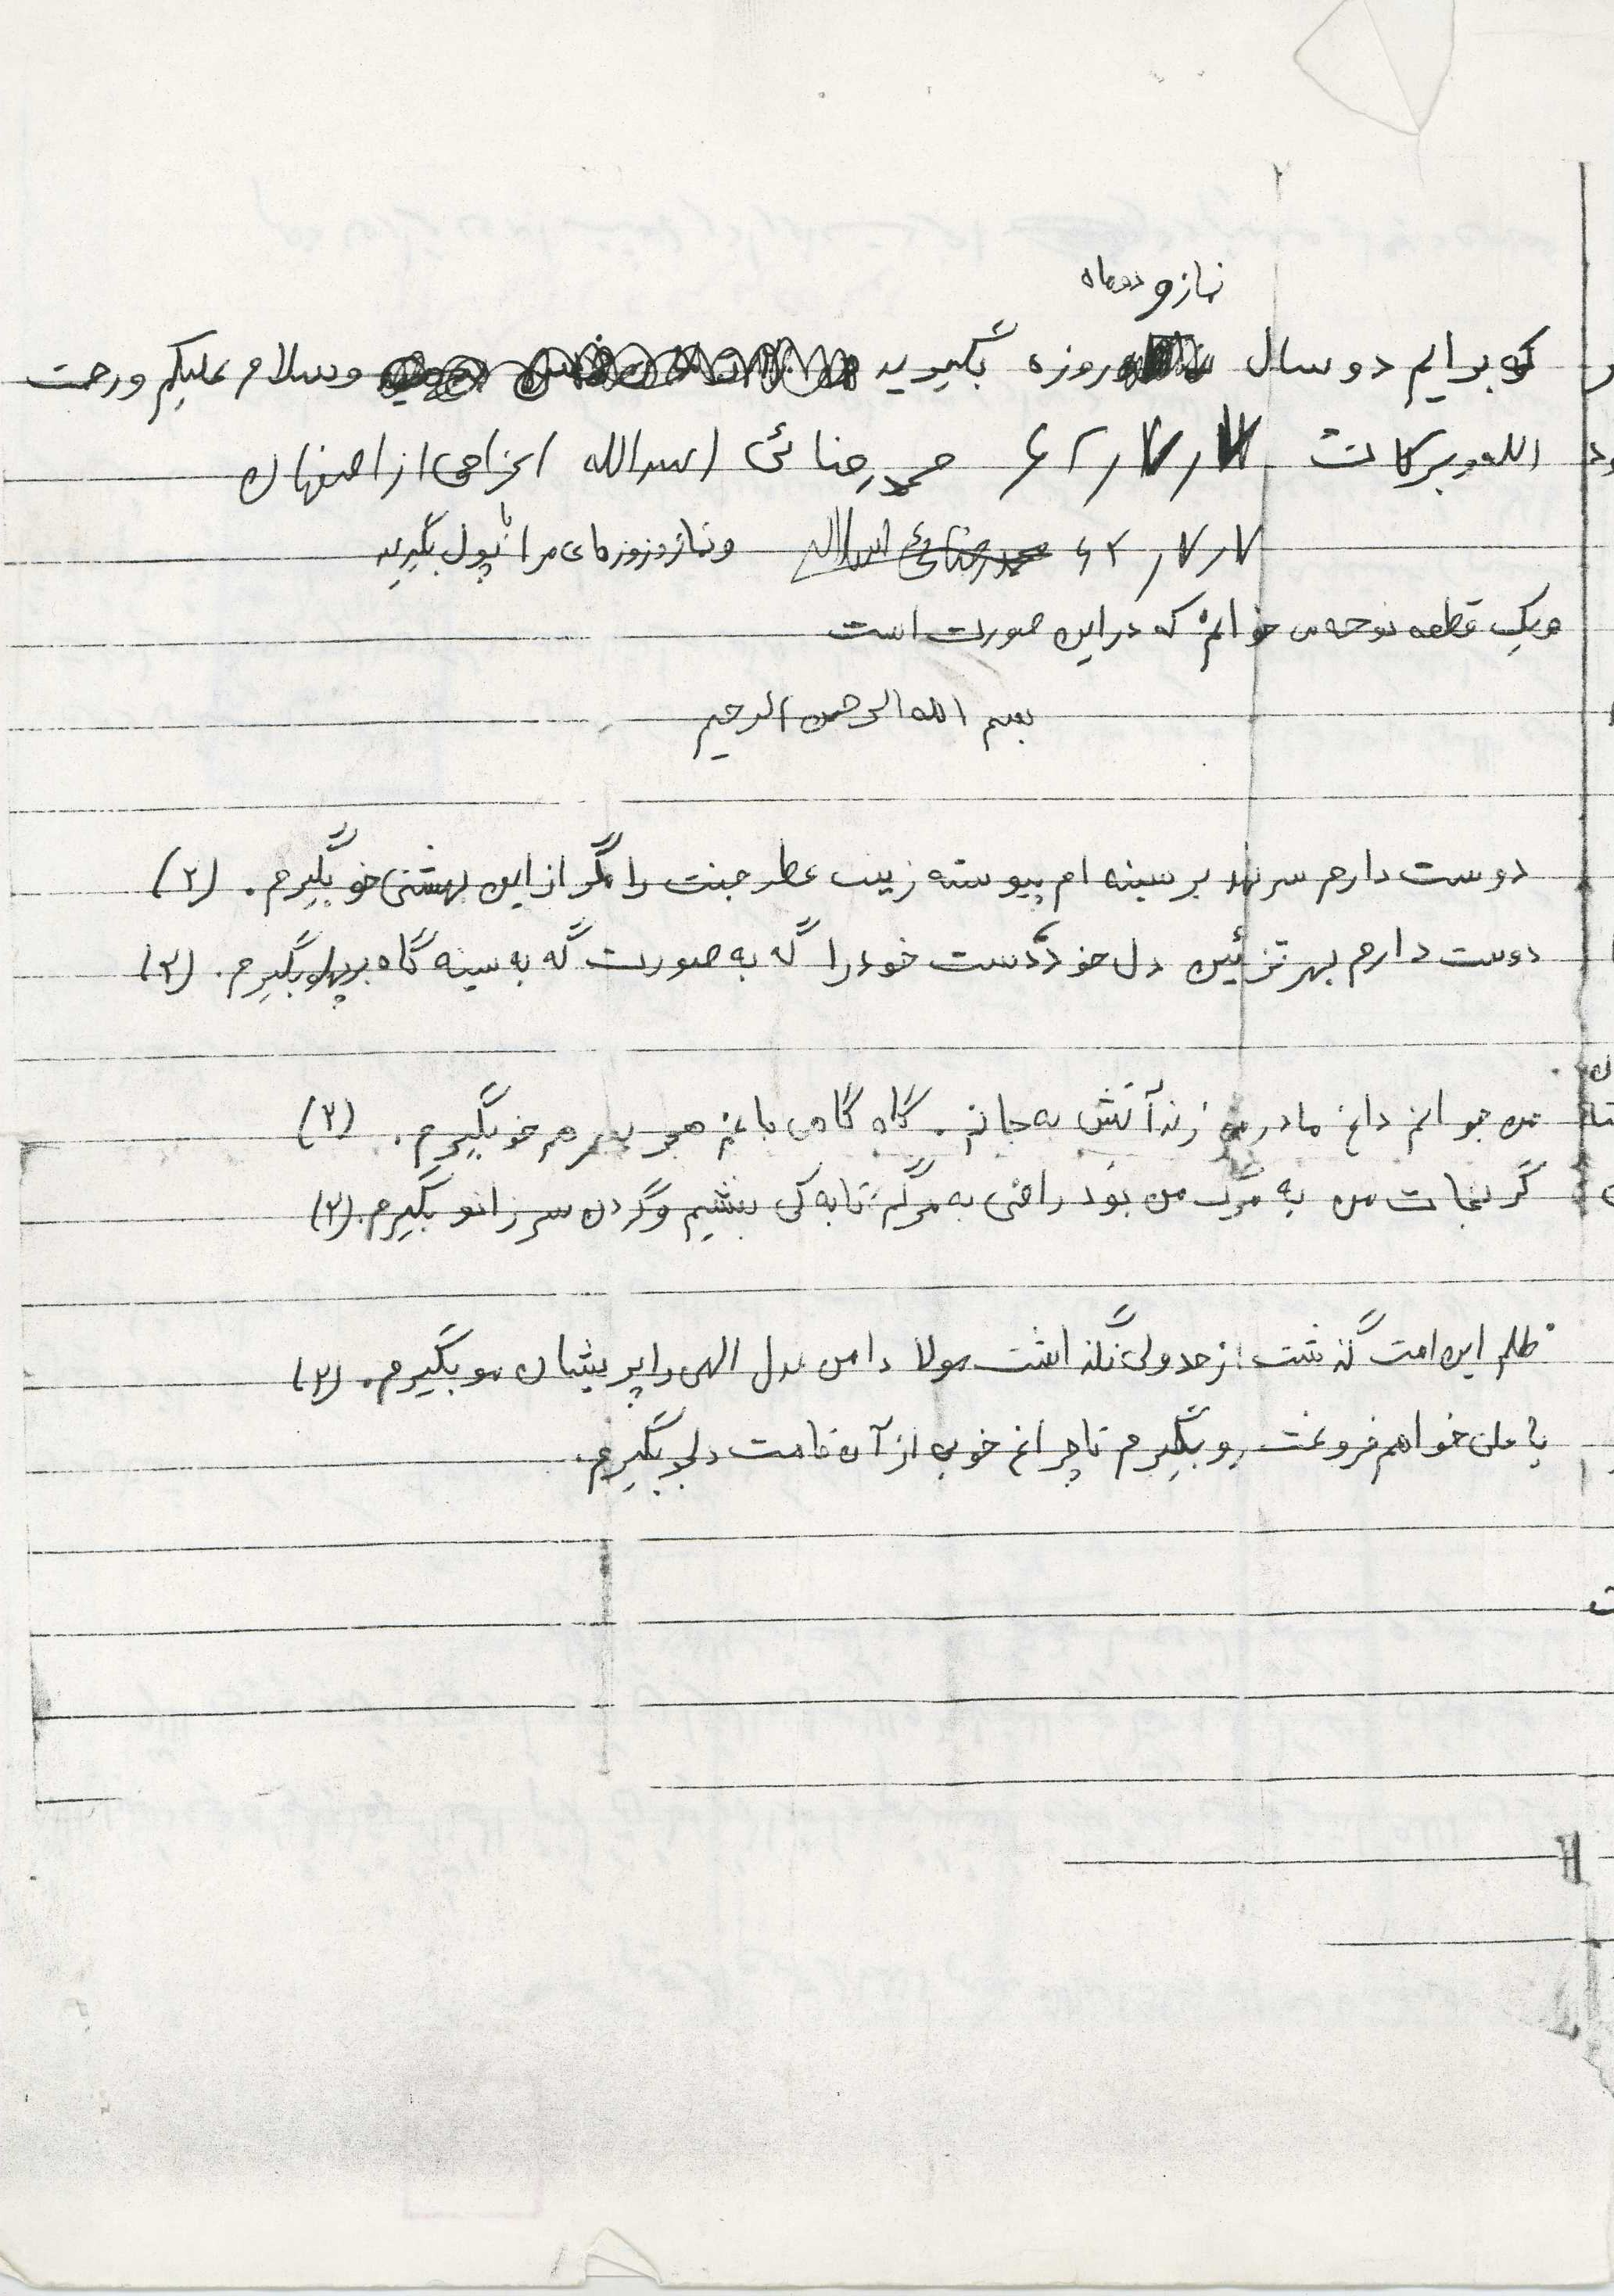 نماز و دو ماه
که برایم دو سال روزه بگیرید وسلام علیکم ورحمت
الله وبرکات ۷/۷/۶۲ محمد رضائی اسدالله اعزامی از اصفهان
۷/۷/۶۲ محمد رضائی اسدالله ونماز و روزهای مرا با پول بگیرید
ویک قطعه نوحه می خوانم که در این صورت است
بسم الله الرحمن الرحیم
دوست دارم سر نهد بر سینه ام پیوسته زینب عطر جنت را مگر از این بهشتی خو بگیرم. (۲)
دوست دارم بهر تزئین دل خود دست خود را گه به صورت گه به سینه گاه بر پهلو بگیرم. (۲)
من جوانم داغ مادر زند آتش به جانم. گاه گاهی با غم هجر خو بگیرم. (۲)
گر نجات من به مرگ من بود راضی به مرگم تا به کی بنشینم و گردن سر زانو بگیرم. (۲)
ظلم این امت گذشت از حد ولی نگذاشت مولا دامن عدل الهی را پریشان مو بگیرم. (۲)
یا علی خواهم فروغت رو بگیرم تا چراغ خوبی از آن قامت دلجو بگیرم.